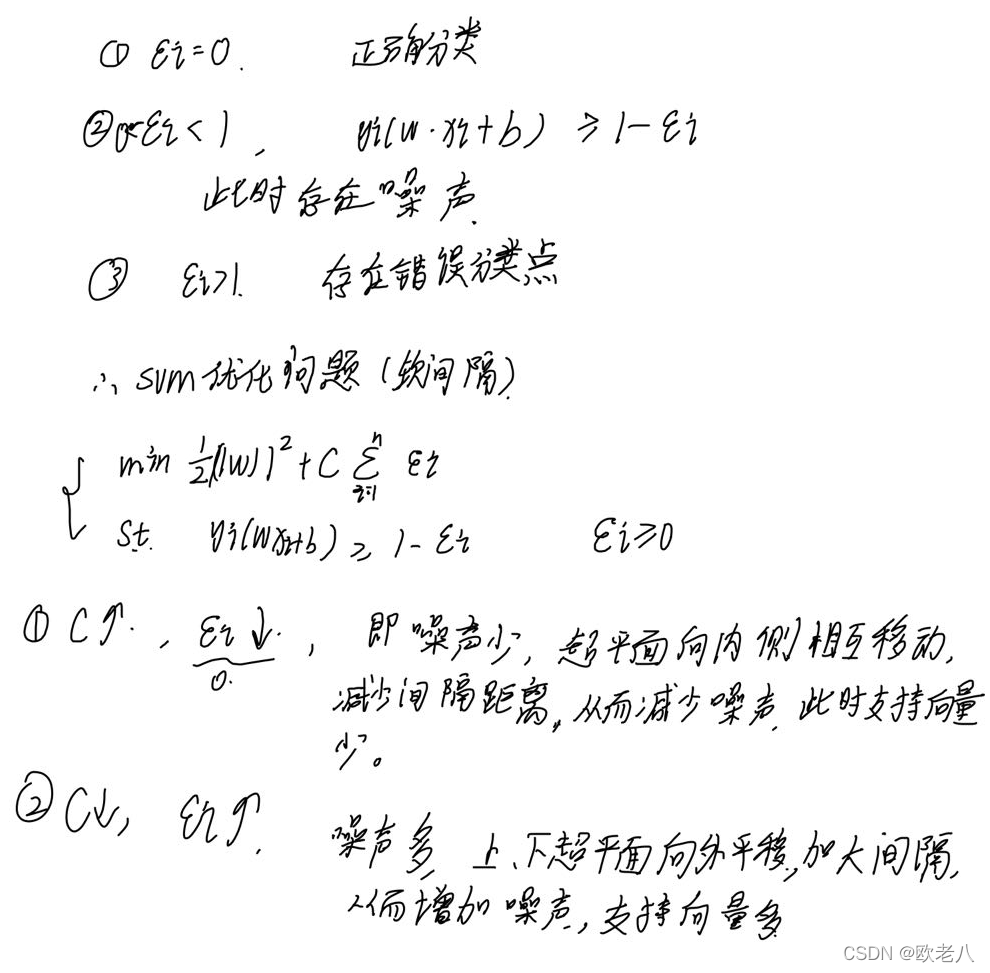 ① εi=0. 正确分类
② 0<εi<1, yi(w·xi+b) ≥ 1-εi
此时存在噪声.
③ εi>1. 存在错误分类点
∴ SVM优化问题(软间隔)
min 1/2||w||² + C Σ(i=1→n) εi
s.t. yi(wxi+b) ≥ 1-εi εi≥0
① C↑., εi↓., 即噪声少, 超平面向内侧相互移动,
0.
减少间隔距离, 从而减少噪声. 此时支持向量
少。
② C↓, εi↑.
噪声多, 上、下超平面向外平移, 加大间隔,
从而增加噪声, 支持向量多
CSDN @欧老八